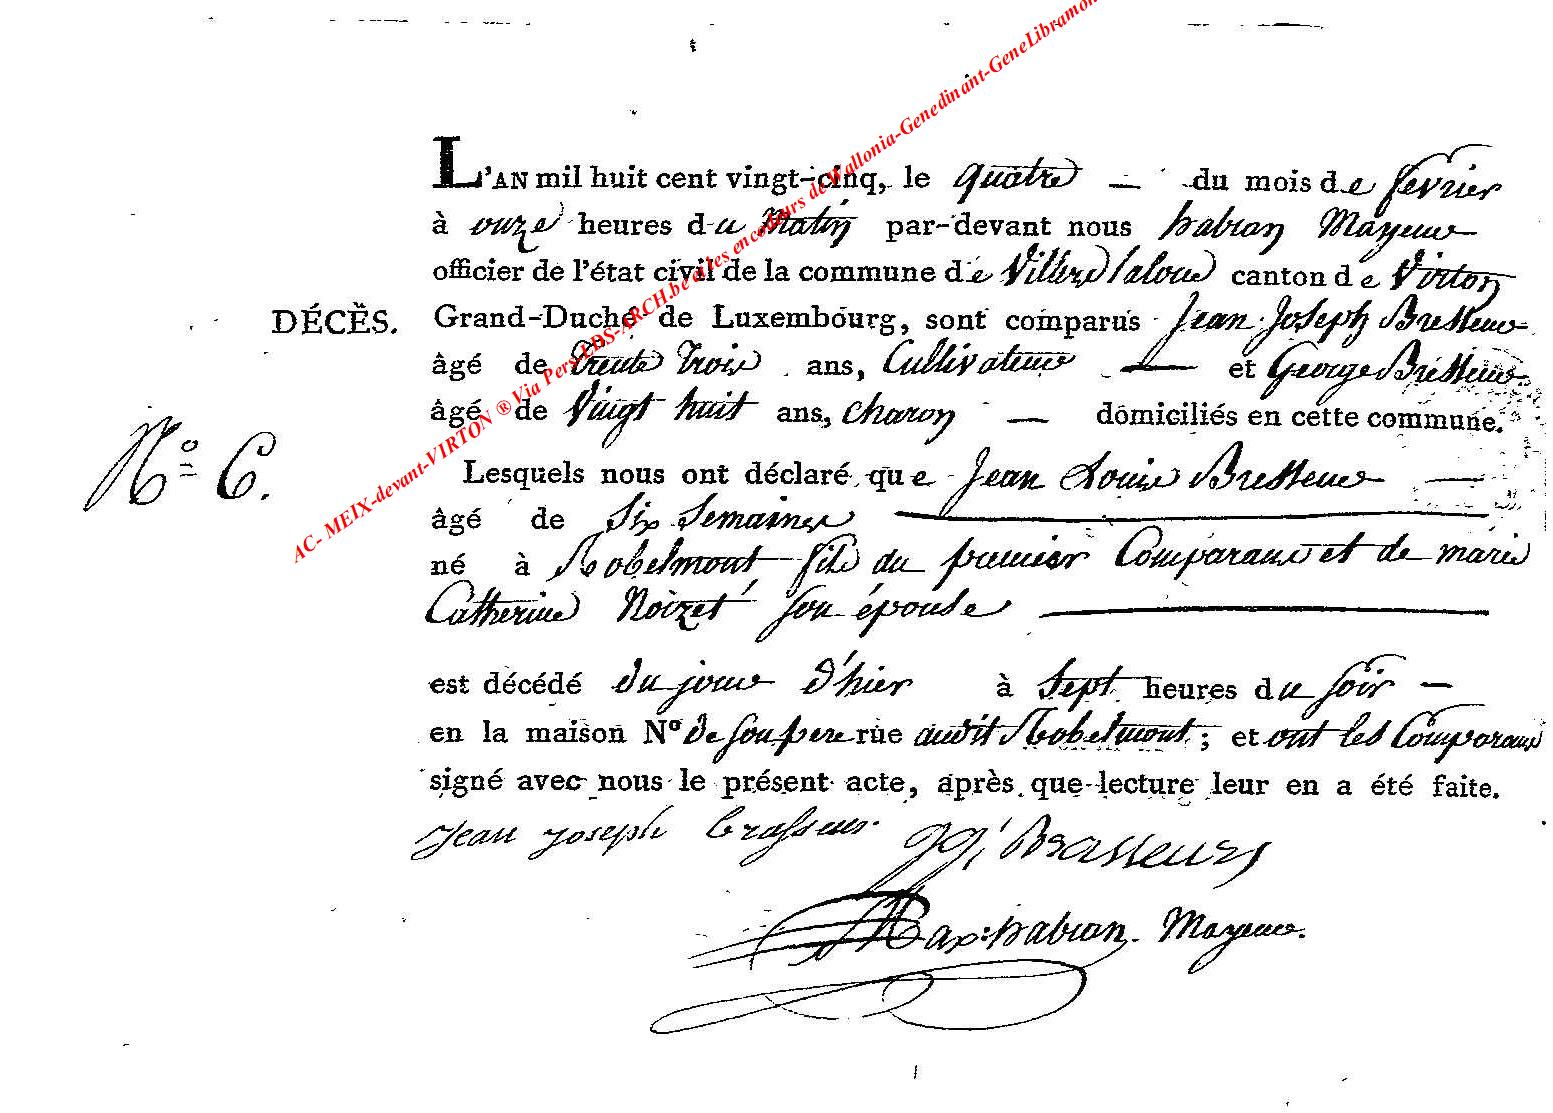 AC- MEIX-devant-VIRTON ® Via Pers-LDS-ARCH.be et les encodeurs de Wallonia-Genedinant-GeneLibramon
L'AN mil huit cent vingt-cinq, le quatre — du mois de fevrier
à onze heures du Matin par-devant nous habran Mayeur
officier de l'état civil de la commune de Villers laloue canton de Virton
DÉCÈS. Grand-Duché de Luxembourg, sont comparus Jean Joseph Bresseur
âgé de Trente Trois ans, Cultivateur — et George Bresseur
âgé de Vingt huit ans, charon — domiciliés en cette commune.
N.º 6.
Lesquels nous ont déclaré que Jean Louis Bresseur —
âgé de Six Semaines
né à Robelmont fils du premier Comparant et de marie
Catherine Noizet son épouse
est décédé du jour d'hier à Sept heures du soir —
en la maison Nº de son pere rue audit Robelmont ; et ont les Comparans
signé avec nous le présent acte, après que lecture leur en a été faite.
Jean joseph brasseur. gg: Brasseur
Max: habran. Mayeur.